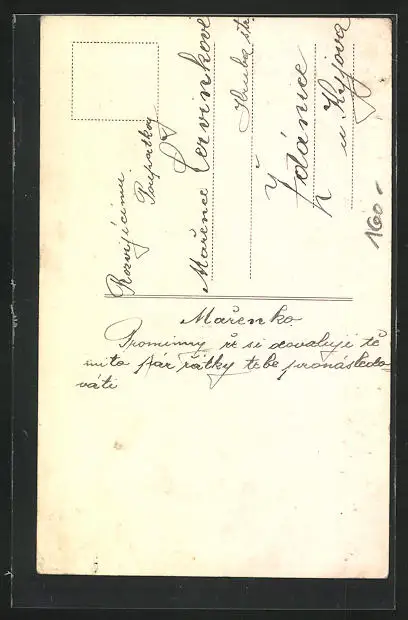 Rozvijícímu
Poupátkou
Mařence Červinkové
Hrubá str.
Ždánice
u Kyjova
160-
Mařenko
Promiňuj že si dovoluji tě
mito pár řátky tebe pronásledo-
váti